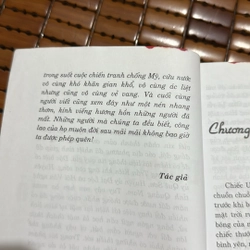 trong suốt cuộc chiến tranh chống Mỹ, cứu nước
vô cùng khó khăn gian khổ, vô cùng ác liệt
nhưng cũng vô cùng vẻ vang. Và cuối cùng
người viết cũng xem đây như một nén nhang
thơm, kính viếng hương hồn những người đã
mất. Những người mà chúng ta đều biết, công
lao của họ muôn đời sau mãi mãi không bao giờ
ta được phép quên!
Tác giả
Chương
Chiếc U
chuồn chuồ
trước khi b
mặt trời
bóng của
chiếc thướ
bình yên,